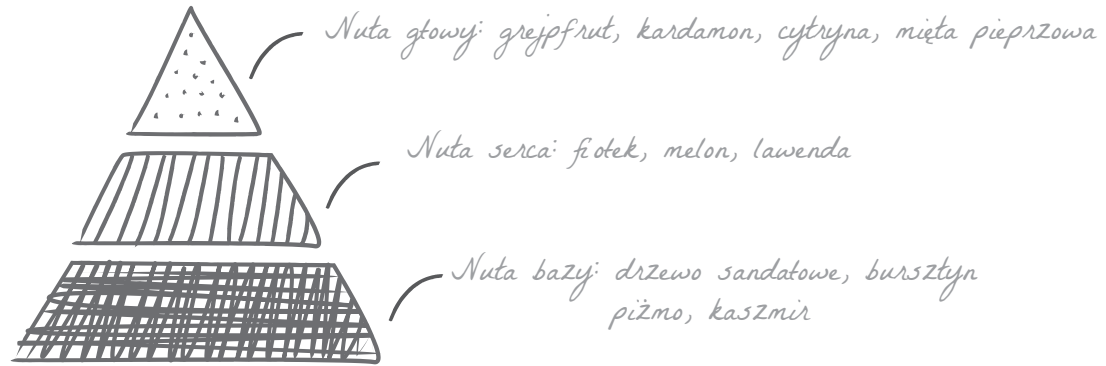 Nuta głowy: grejpfrut, kardamon, cytryna, mięta pieprzowa
Nuta serca: fiołek, melon, lawenda
Nuta bazy: drzewo sandałowe, bursztyn
piżmo, kaszmir